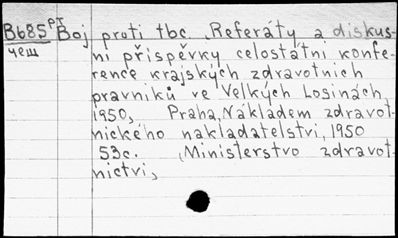 B685 PJ Boj proti tbc. Referáty a diskus-
чеш ní příspěvky celostátní konfe-
rence krajských zdravotních
pravníků ve Velkých Losinách,
1950, Praha, Nákladem zdravot-
nického nakladatelství, 1950
53c. Ministerstvo zdravot-
nictví,